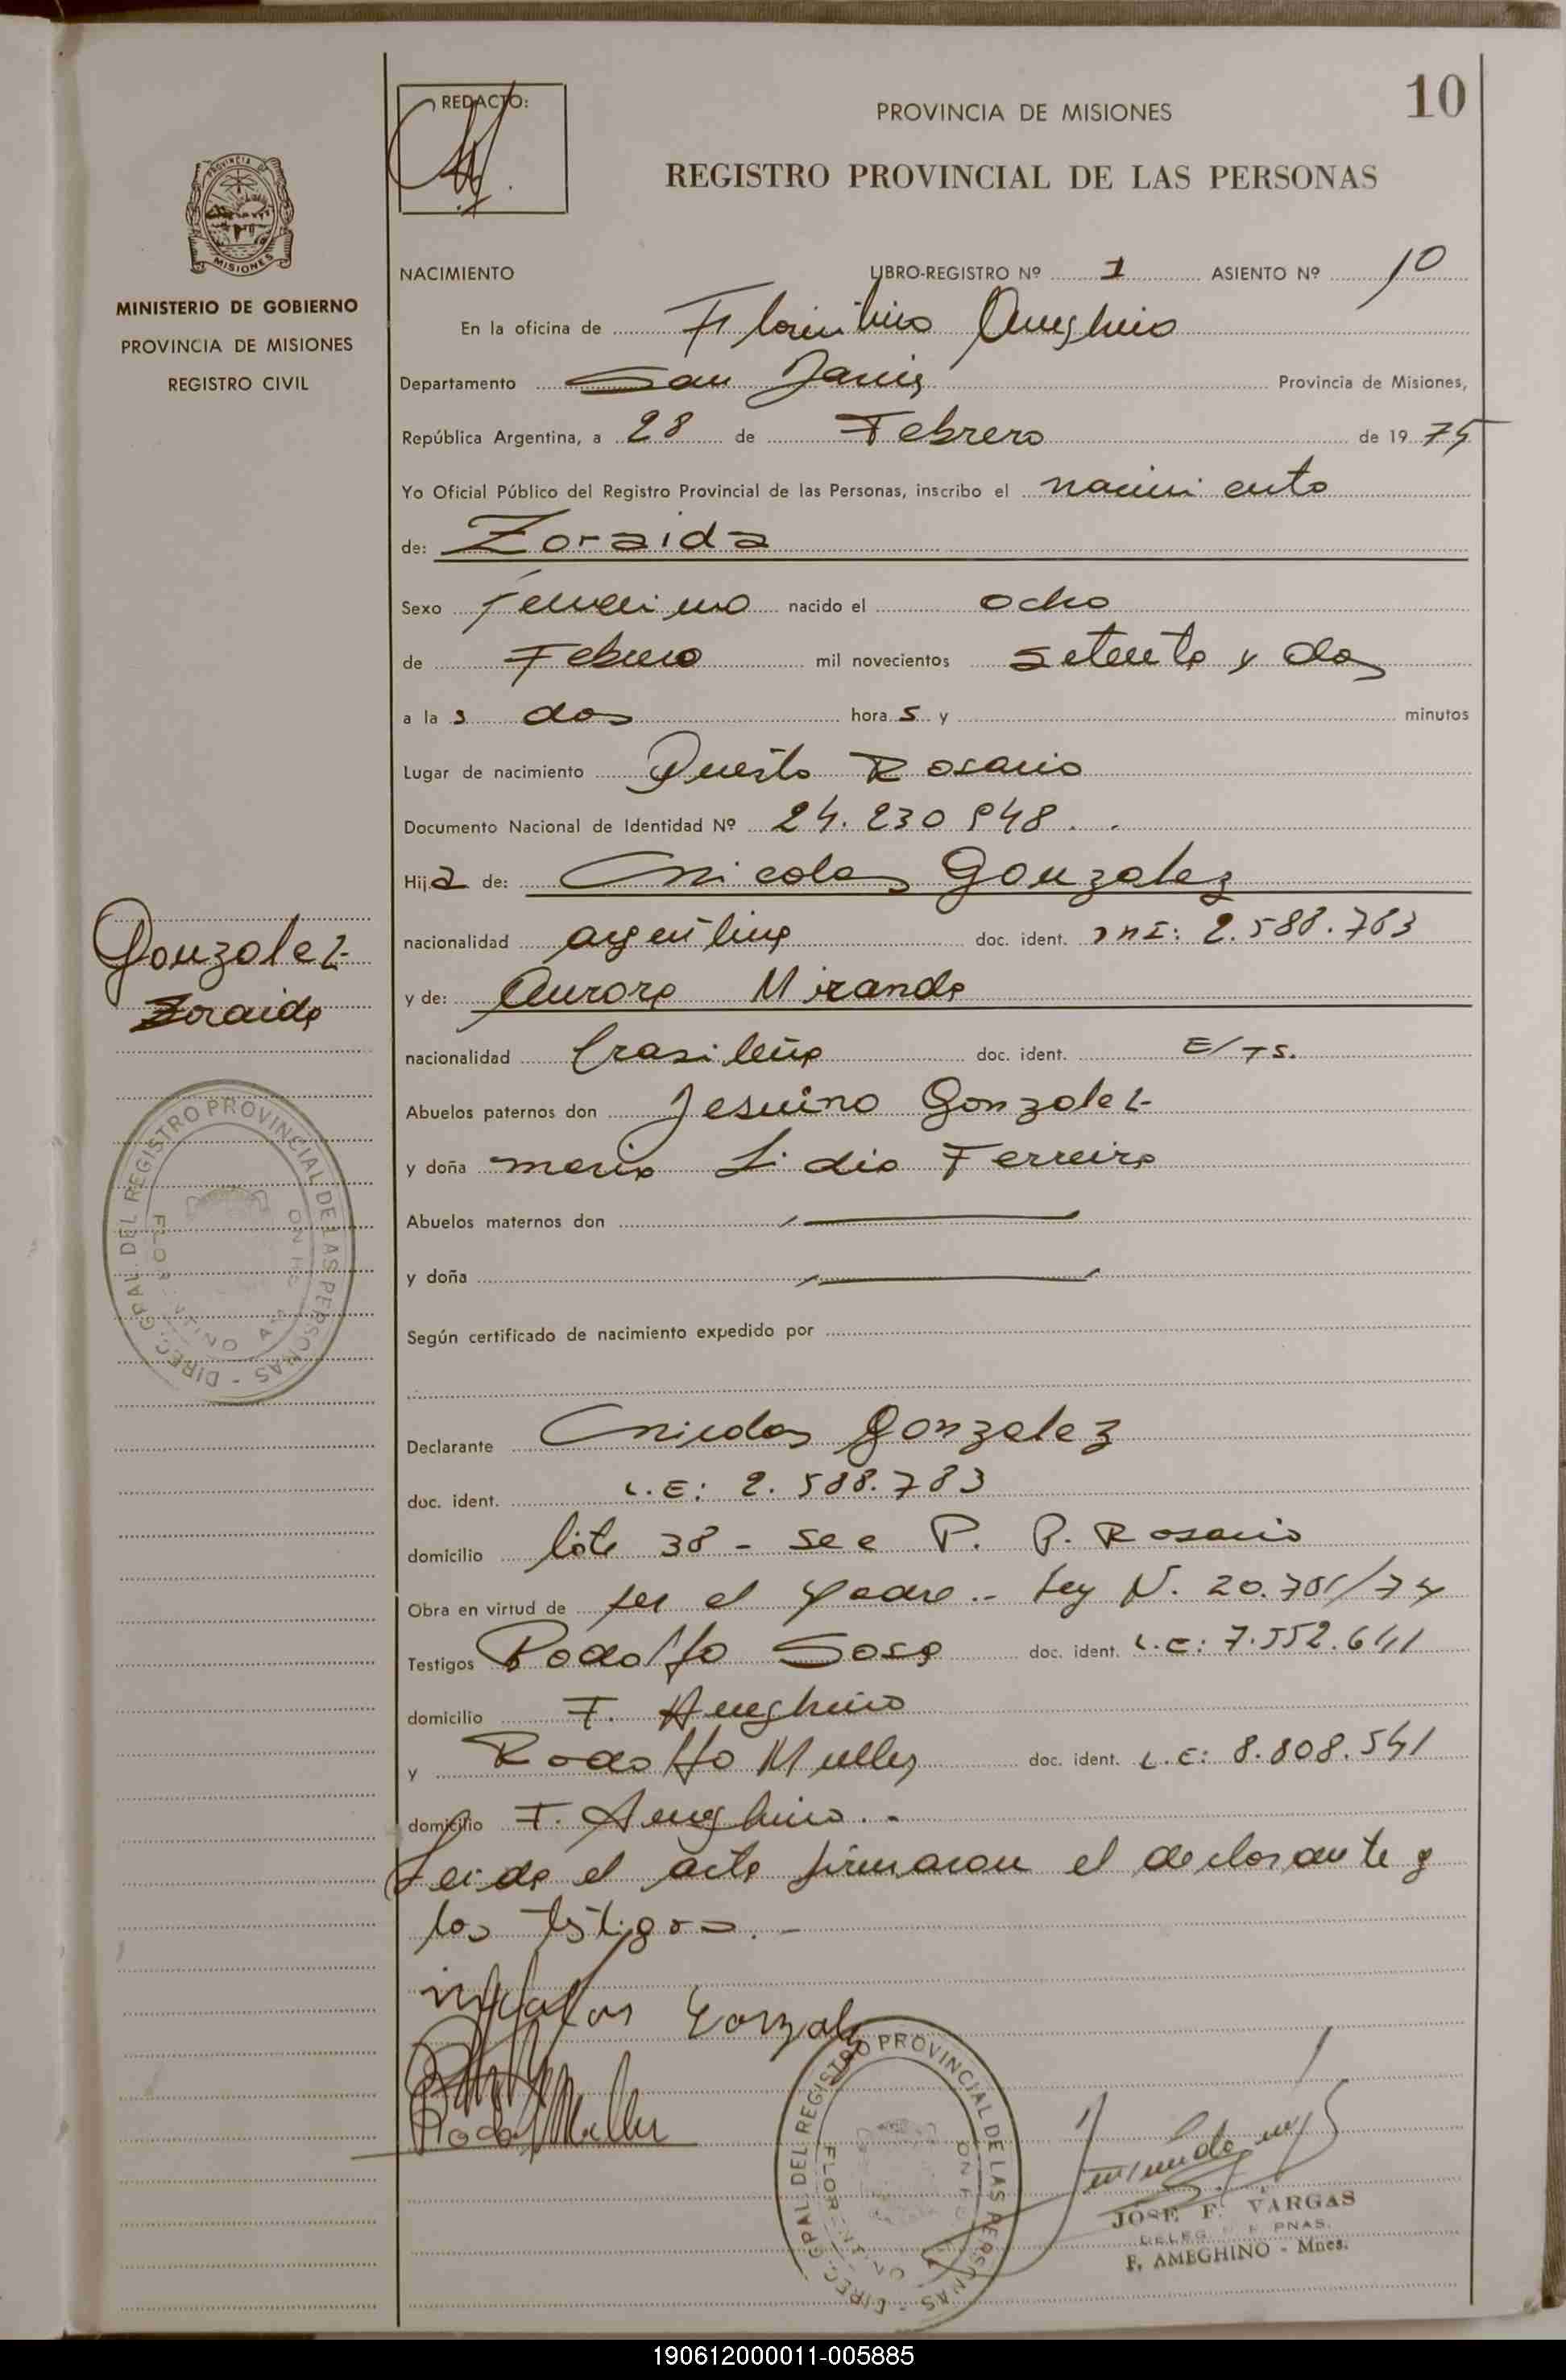 10
REDACTO:
PROVINCIA DE MISIONES
REGISTRO PROVINCIAL DE LAS PERSONAS
PROVINCIA DE
MISIONES
MINISTERIO DE GOBIERNO
PROVINCIA DE MISIONES
REGISTRO CIVIL
NACIMIENTO LIBRO-REGISTRO Nº 1 ASIENTO Nº 10
En la oficina de Florentino Ameghino
Departamento San Javier Provincia de Misiones,
República Argentina, a 28 de Febrero de 1975
Yo Oficial Público del Registro Provincial de las Personas, inscribo el nacimiento
de: Zoraida
Sexo Femenino nacido el ocho
de Febrero mil novecientos setenta y dos
a las dos horas y minutos
Lugar de nacimiento Puerto Rosario
Documento Nacional de Identidad Nº 24.230 948
Hija de: Nicolas Gonzalez
nacionalidad argentina doc. ident. 2.588.783
y de: Aurora Miranda
nacionalidad brasileña doc. ident. E/TS.
Abuelos paternos don Jesuino Gonzalez
y doña Maria Lidia Ferreira
Abuelos maternos don
y doña
Según certificado de nacimiento expedido por
Declarante Nicolas Gonzalez
doc. ident. L.E: 2.588.783
domicilio lote 38 - Sec P. P. Rosario
Obra en virtud de ser el padre.- Ley N. 20.751/74
Testigos Rodolfo Sosa doc. ident. L.E: 7.552.641
domicilio F. Ameghino
y Rodolfo Muller doc. ident. L.E: 8.808.541
domicilio F. Ameghino.-
Leida el acta firmaron el declarante y
los testigos.-
Gonzalez
Zoraida
DIREC. GRAL. DEL REGISTRO PROVINCIAL DE LAS PERSONAS
FLORENTINO
Gonzalez
Muller
DIREC. GRAL. DEL REGISTRO PROVINCIAL DE LAS PERSONAS
FLORENTINO
JOSE F. VARGAS
DELEG. PNAS.
F. AMEGHINO - Mnes.
190612000011-005885